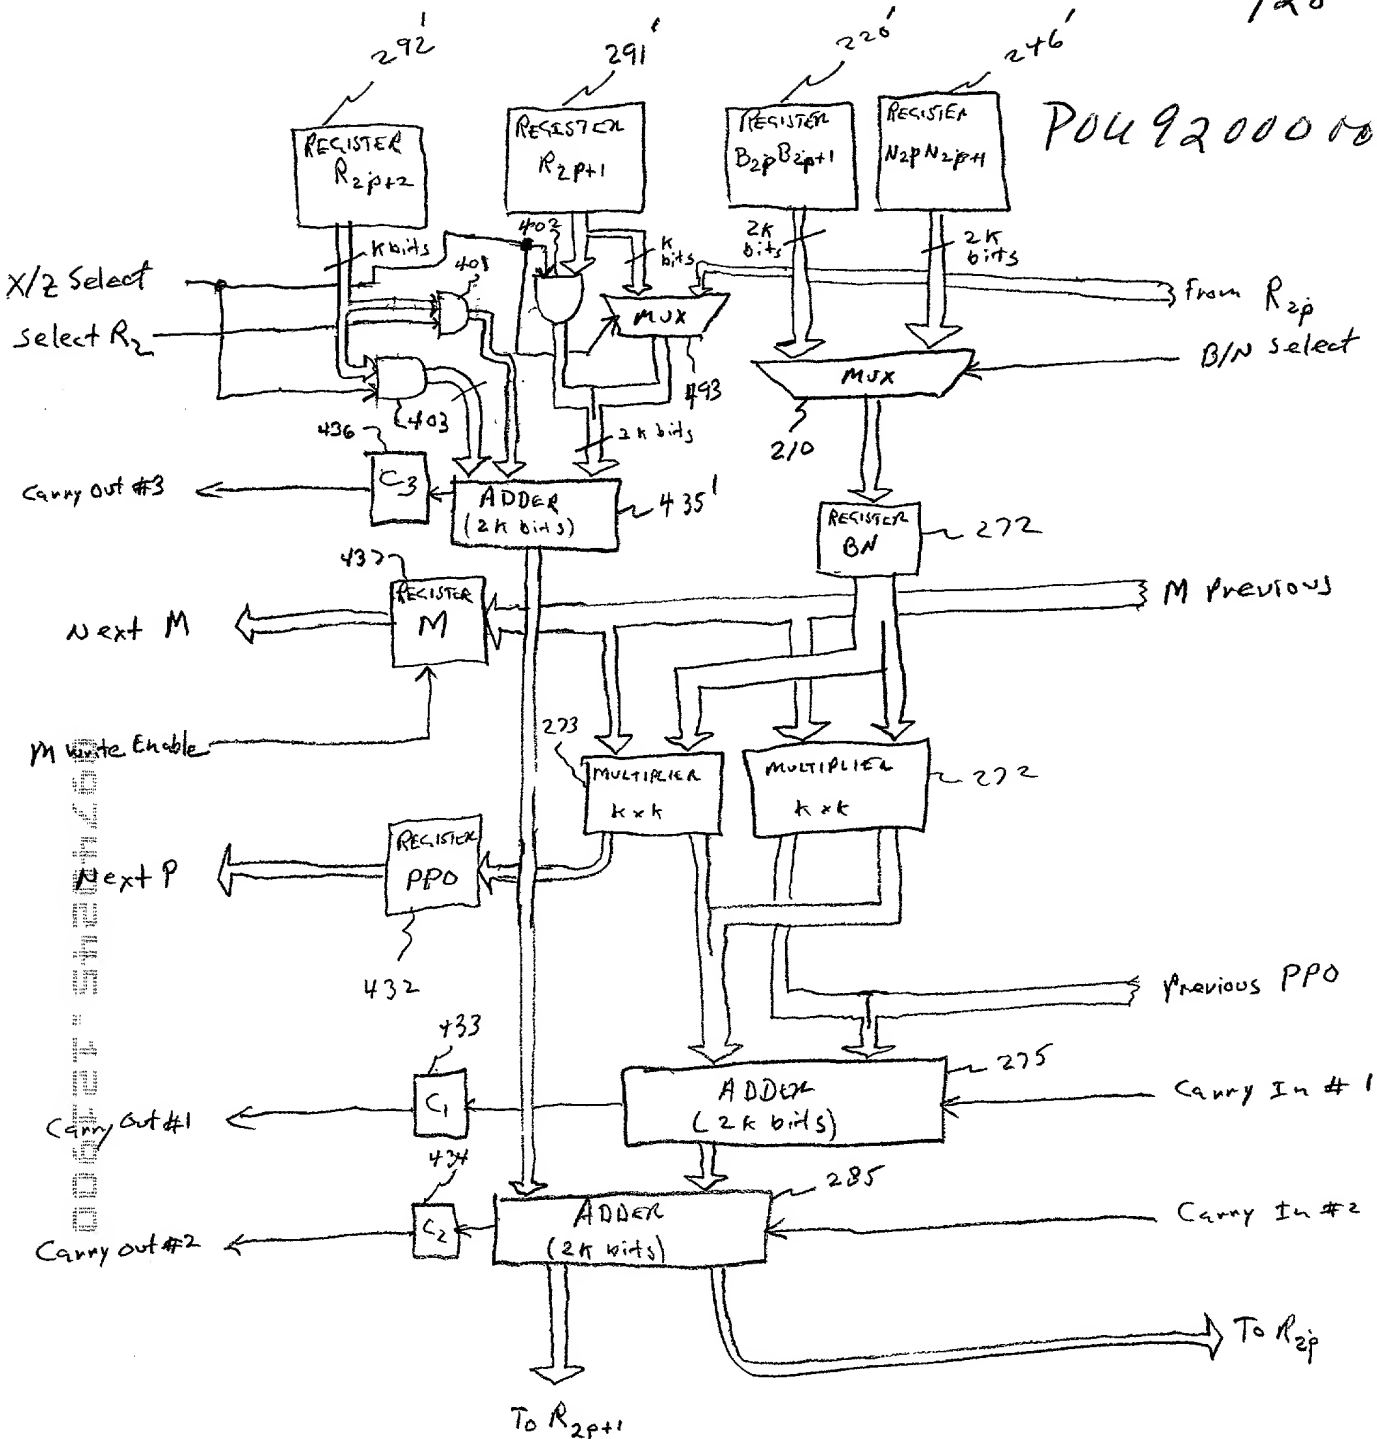 120
292'
291'
220'
246'
REGISTER
R2p+2
REGISTER
R2p+1
REGISTER
B2pB2p+1
REGISTER
N2pN2p+1
POU920000
402
K bits
K bits
2K bits
2K bits
X/Z Select
401
MUX
From R2p
Select R2
493
MUX
B/N Select
403
210
436
2K bits
Carry Out #3
C3
ADDER
(2K bits)
435'
REGISTER
BN
272
437
REGISTER
M
Next M
M Previous
M Write Enable
273
MULTIPLIER
K x K
MULTIPLIER
K x K
272
REGISTER
PPO
Next P
432
Previous PPO
433
C1
Carry Out #1
ADDER
(2K bits)
275
Carry In #1
434
C2
Carry Out #2
ADDER
(2K bits)
285
Carry In #2
To R2p
To R2p+1